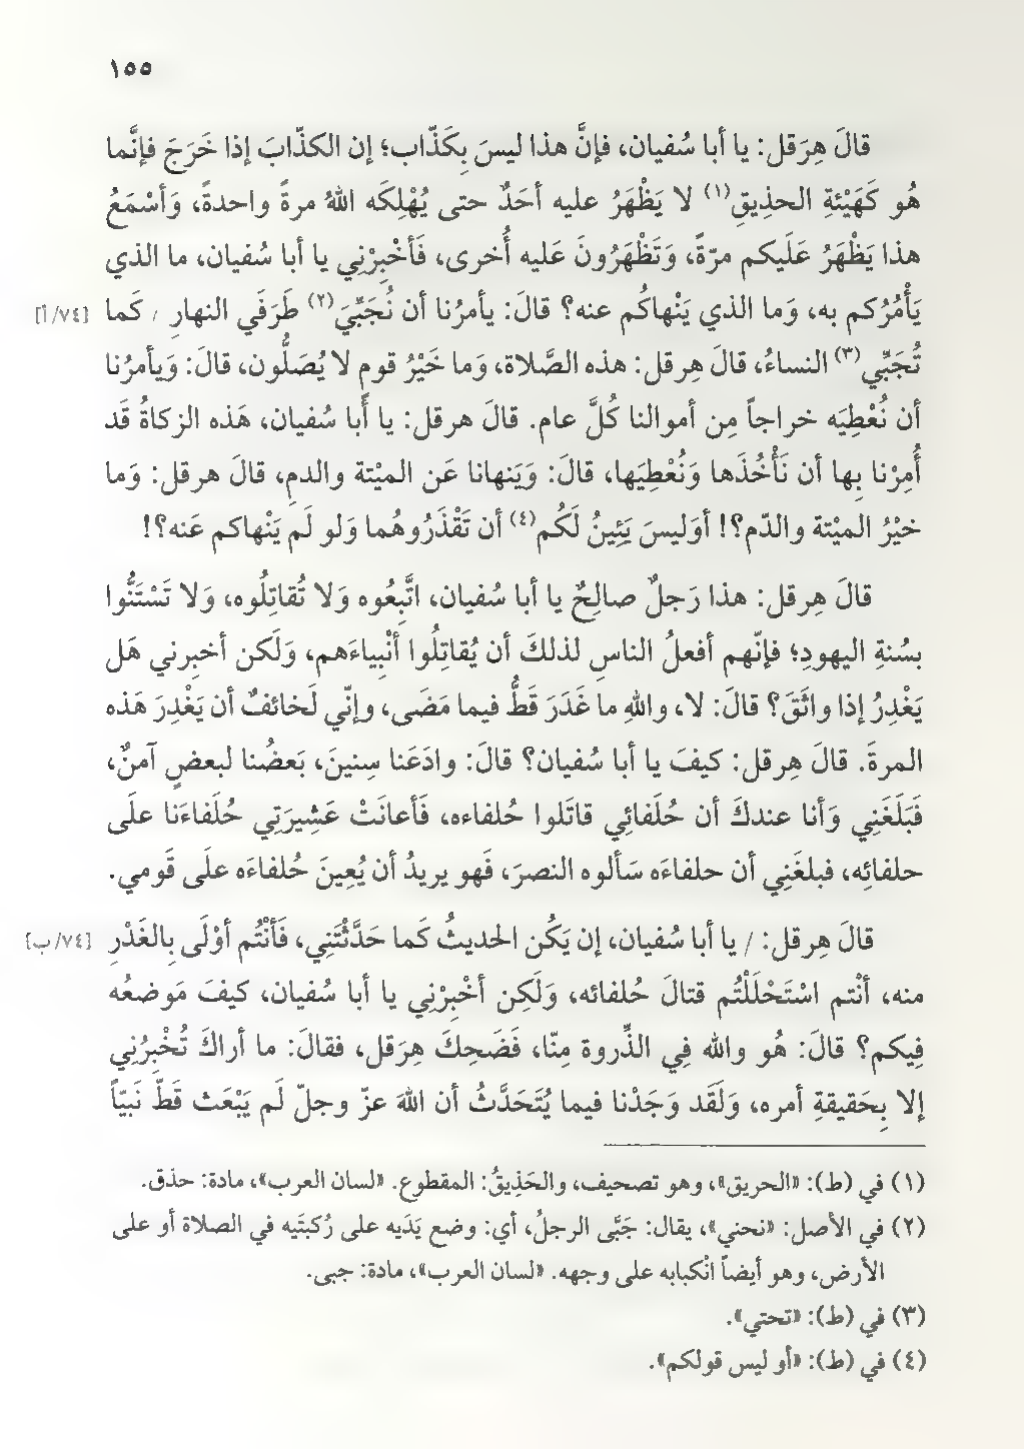 ١٥٥
قالَ هِرَقل: يا أبا سُفيان، فإنَّ هذا ليسَ بِكَذّاب؛ إن الكذّابَ إذا خَرَجَ فإنَّما
هُو كَهَيْئةِ الحذِيقِ(١) لا يَظْهَرُ عليه أحَدٌ حتى يُهْلِكَه اللهُ مرةً واحدةً، وَأسْمَعُ
هذا يَظْهَرُ عَلَيكم مرّةً، وَتَظْهَرُونَ عَليه أُخرى، فَأخْبِرْنِي يا أبا سُفيان، ما الذي
يَأْمُرُكم به، وَما الذي يَنْهاكُم عنه؟ قالَ: يأمرُنا أن نُجَبِّيَ(٢) طَرَفَي النهارِ / كَما [٧٤/ أ]
تُجَبِّي(٣) النساءُ، قالَ هِرقل: هذه الصَّلاة، وَما خَيْرُ قومٍ لا يُصَلُّون، قالَ: وَيأمرُنا
أن نُعْطِيَه خراجاً مِن أموالنا كُلَّ عام. قالَ هرقل: يا أَبا سُفيان، هَذه الزكاةُ قَد
أُمِرْنا بِها أن نَأْخُذَها وَنُعْطِيَها، قالَ: وَيَنهانا عَن الميْتة والدمِ، قالَ هرقل: وَما
خيْرُ الميْتة والدّم؟! أوَليسَ يَئِينُ لَكُم(٤) أن تَقْذَرُوهُما وَلو لَم يَنْهاكم عَنه؟!
قالَ هِرقل: هذا رَجلٌ صالِحٌ يا أبا سُفيان، اتَّبِعُوه وَلا تُقاتِلُوه، وَلا تَسْتَنُّوا
بسُنةِ اليهودِ؛ فإنّهم أفعلُ الناسِ لذلكَ أن يُقاتِلُوا أنْبِياءَهم، وَلَكن أخبِرني هَل
يَغْدِرُ إذا واثَقَ؟ قالَ: لا، واللهِ ما غَدَرَ قَطُّ فيما مَضَى، وإنّي لَخائفٌ أن يَغْدِرَ هَذه
المرةَ. قالَ هِرقل: كيفَ يا أبا سُفيان؟ قالَ: وادَعَنا سِنينَ، بَعضُنا لبعضٍ آمنٌ،
فَبَلَغَنِي وَأنا عندكَ أن حُلَفائِي قاتَلوا حُلفاءه، فَأعانَتْ عَشِيرَتِي حُلَفاءَنا علَى
حلفائِه، فبلغَنِي أن حلفاءَه سَألوه النصرَ، فَهو يريدُ أن يُعِينَ حُلفاءَه علَى قَومي.
قالَ هِرقل: / يا أبا سُفيان، إن يَكُن الحديثُ كَما حَدَّثْتَنِي، فَأنْتُم أوْلَى بِالغَدْرِ [٧٤/ ب]
منه، أنْتم اسْتَحْلَلْتُم قتالَ حُلفائه، وَلَكِن أخْبِرْنِي يا أبا سُفيان، كيفَ مَوضعُه
فِيكم؟ قالَ: هُو والله فِي الذِّروة مِنّا، فَضَحِكَ هِرَقل، فقالَ: ما أراكَ تُخْبِرُنِي
إلا بِحَقيقةِ أمره، وَلَقَد وَجَدْنا فيما يُتَحَدَّثُ أن اللهَ عزّ وجلّ لَم يَبْعَث قَطّ نَبيّاً
(١) في (ط): «الحريق»، وهو تصحيف، والحَذِيقُ: المقطوع. «لسان العرب»، مادة: حذق.
(٢) في الأصل: «نحني»، يقال: جَبَّى الرجلُ، أي: وضع يَدَيه على رُكبتَيه في الصلاة أو على
الأرض، وهو أيضاً انْكبابه على وجهه. «لسان العرب»، مادة: جبى.
(٣) في (ط): «تحتي».
(٤) في (ط): «أو ليس قولكم».